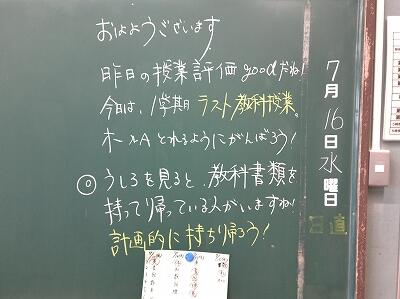 おはようございます
昨日の授業評価goodだね!
今日は、1学期ラスト教科授業。
オールAとれるようにがんばろう!
◎うしろを見ると、教科書類を
持って帰っている人がいますね!
計画的に持ち帰ろう!
7月16日水曜日
日直